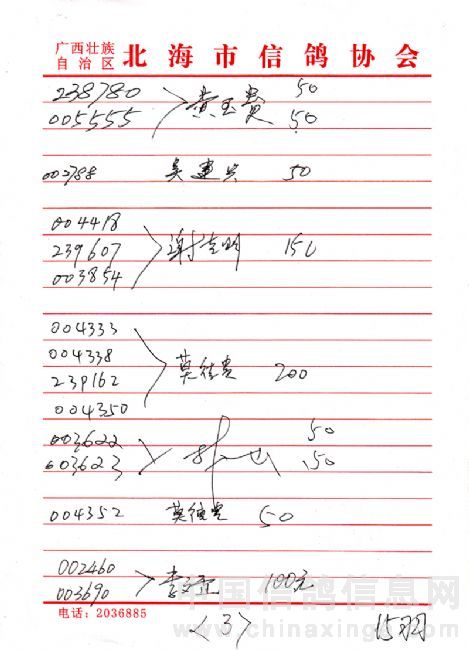 广西壮族自治区 北海市信鸽协会
238780 50
005555 黄玉贵 50
002788 吴建兴 50
004418
239607 谢 明 150
003854
004333
004338
239162 莫德贵 200
004350
003622 50
003623 50
004352 莫德贵 50
002460
003690 李 100元
电话：2036885
<3> 15羽
中国信鸽信息网
www.chinaxinge.com